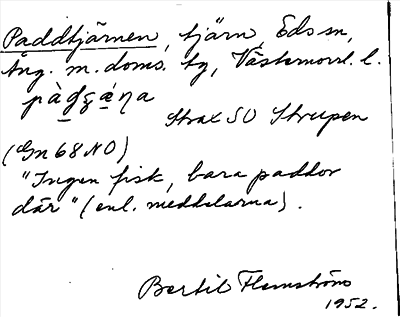 Paddtjärnen, tjärn, Eds sn,
Ång. m. doms. tg, Västernorrl. l.
Strax SO Strupen
(Gn 68 NO)
"Ingen fisk, bara paddor
där" (enl. meddelarna).
Bertil Flemström
1952.